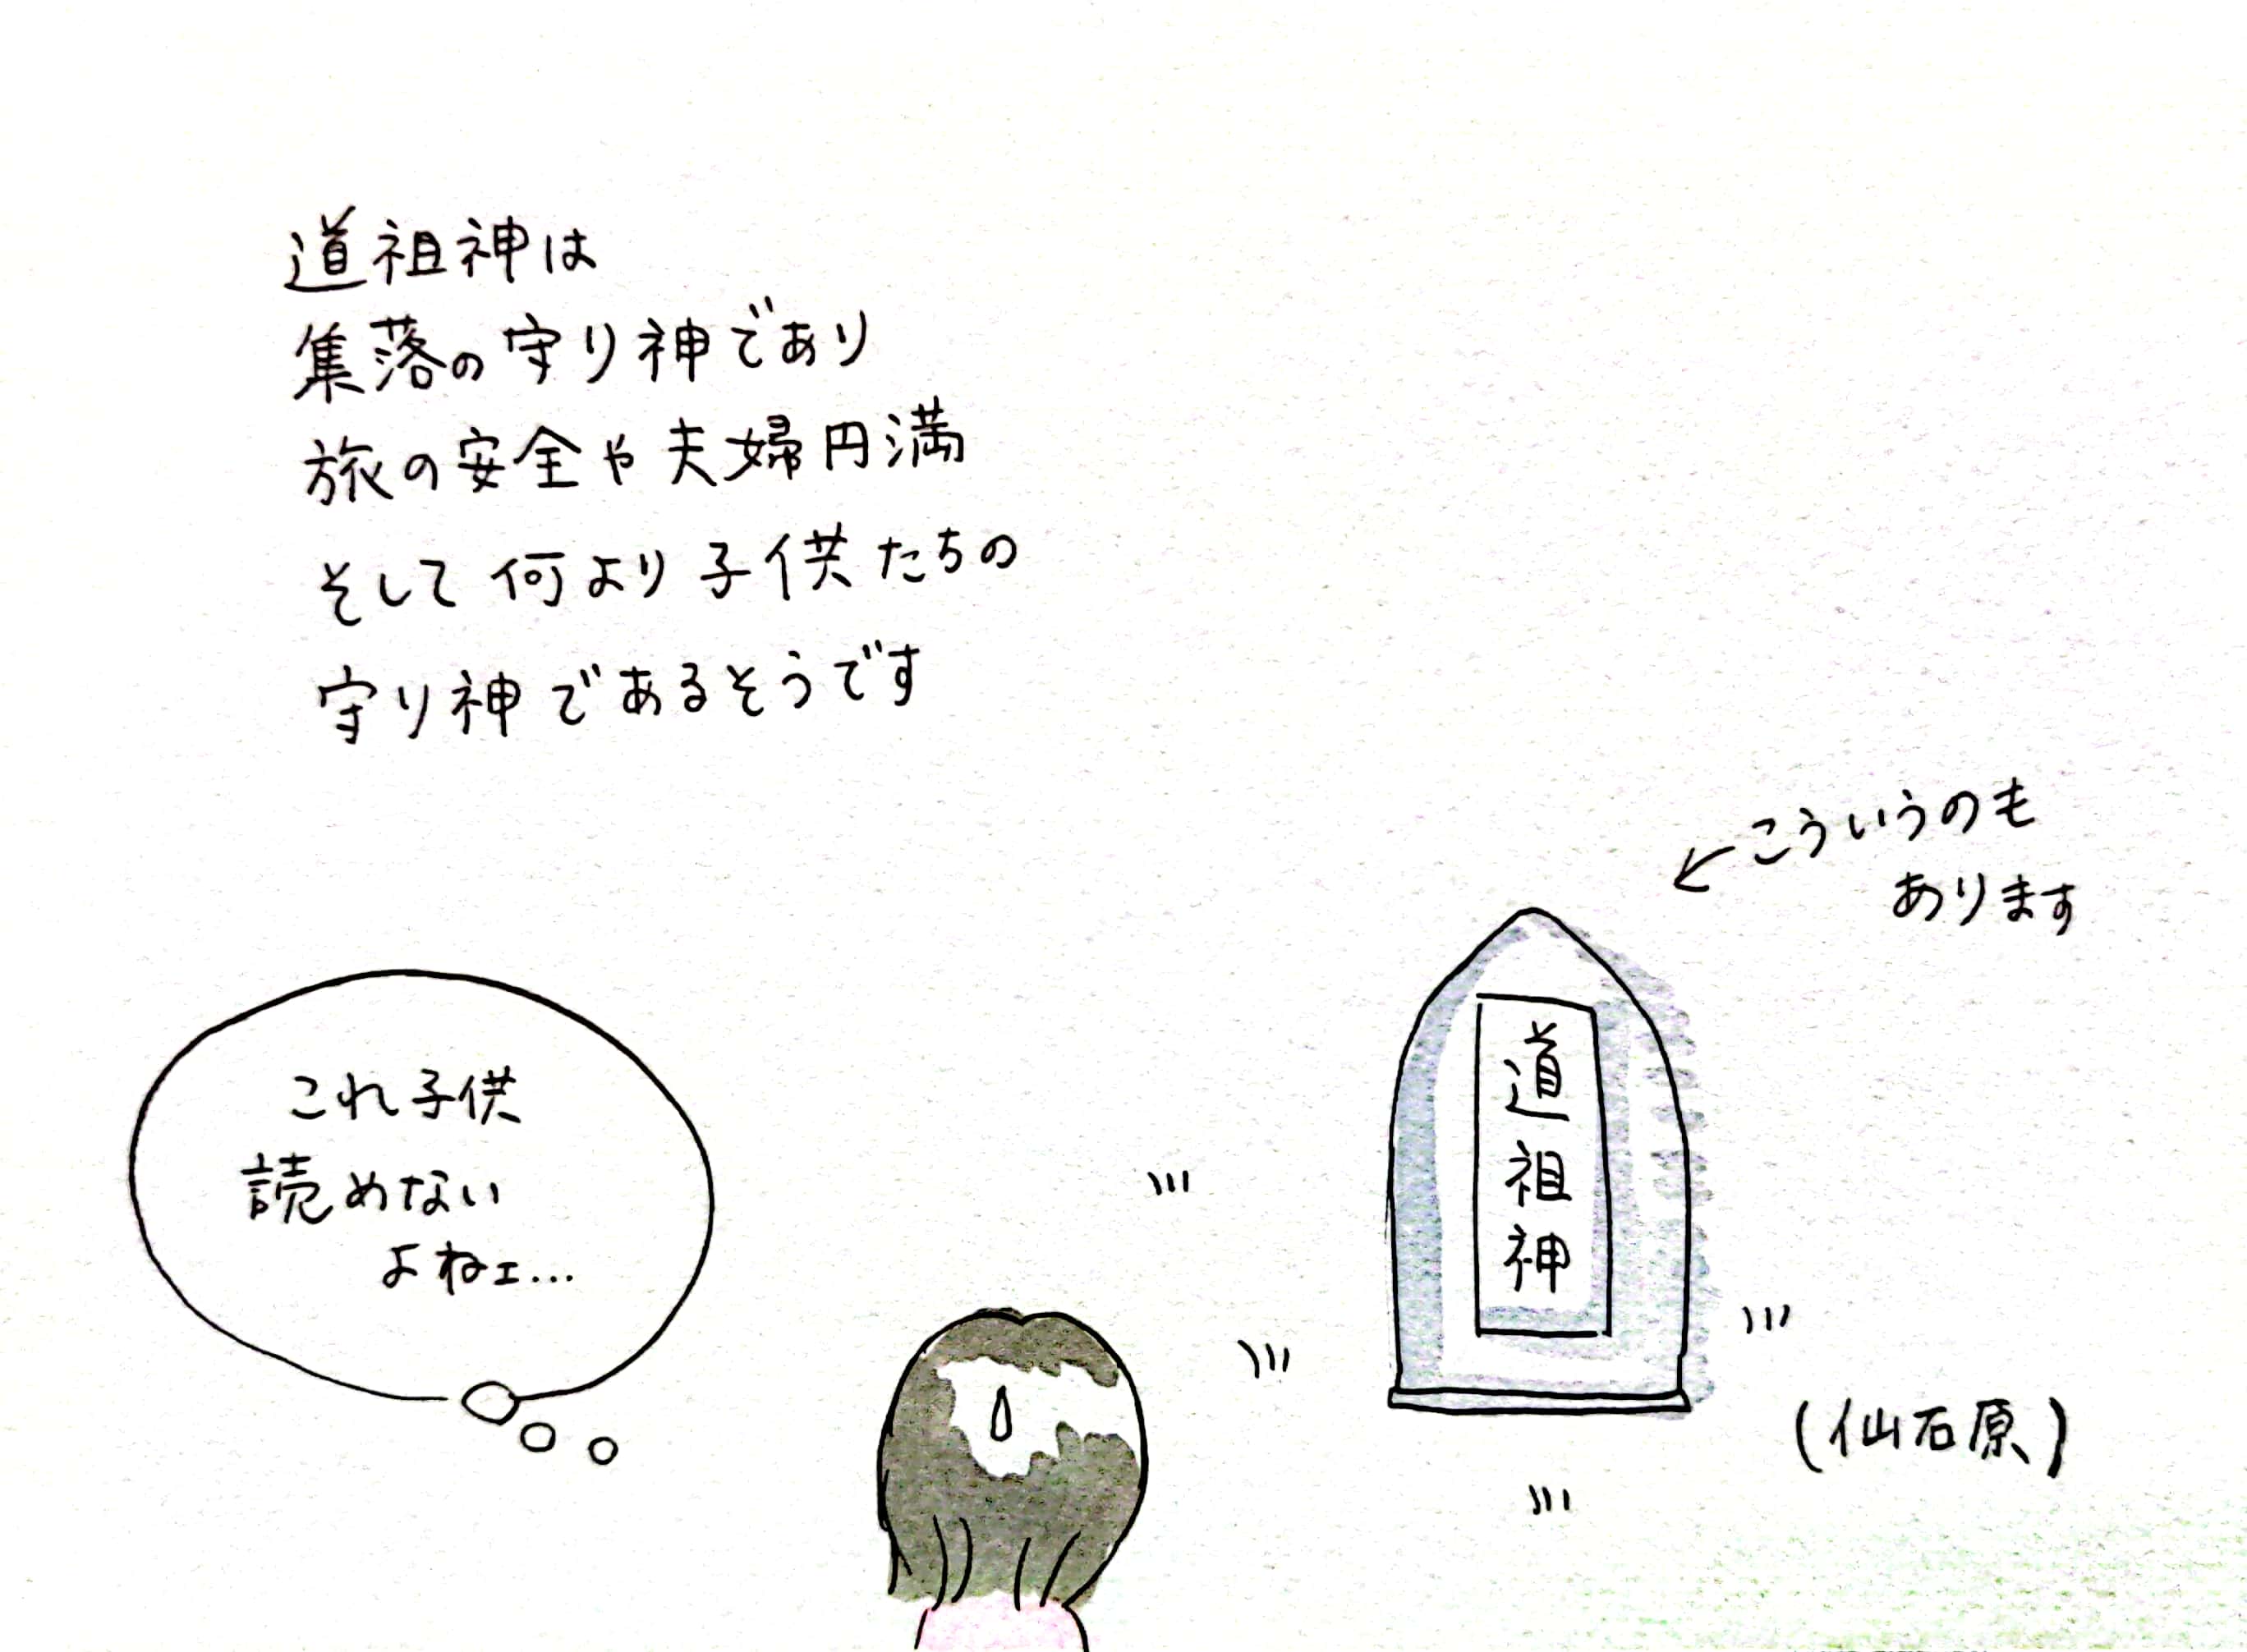 道祖神は
集落の守り神であり
旅の安全や夫婦円満
そして何より子供たちの
守り神であるそうです
←こういうのも
あります
道祖神
(仙石原)
これ子供
読めない
よねェ…